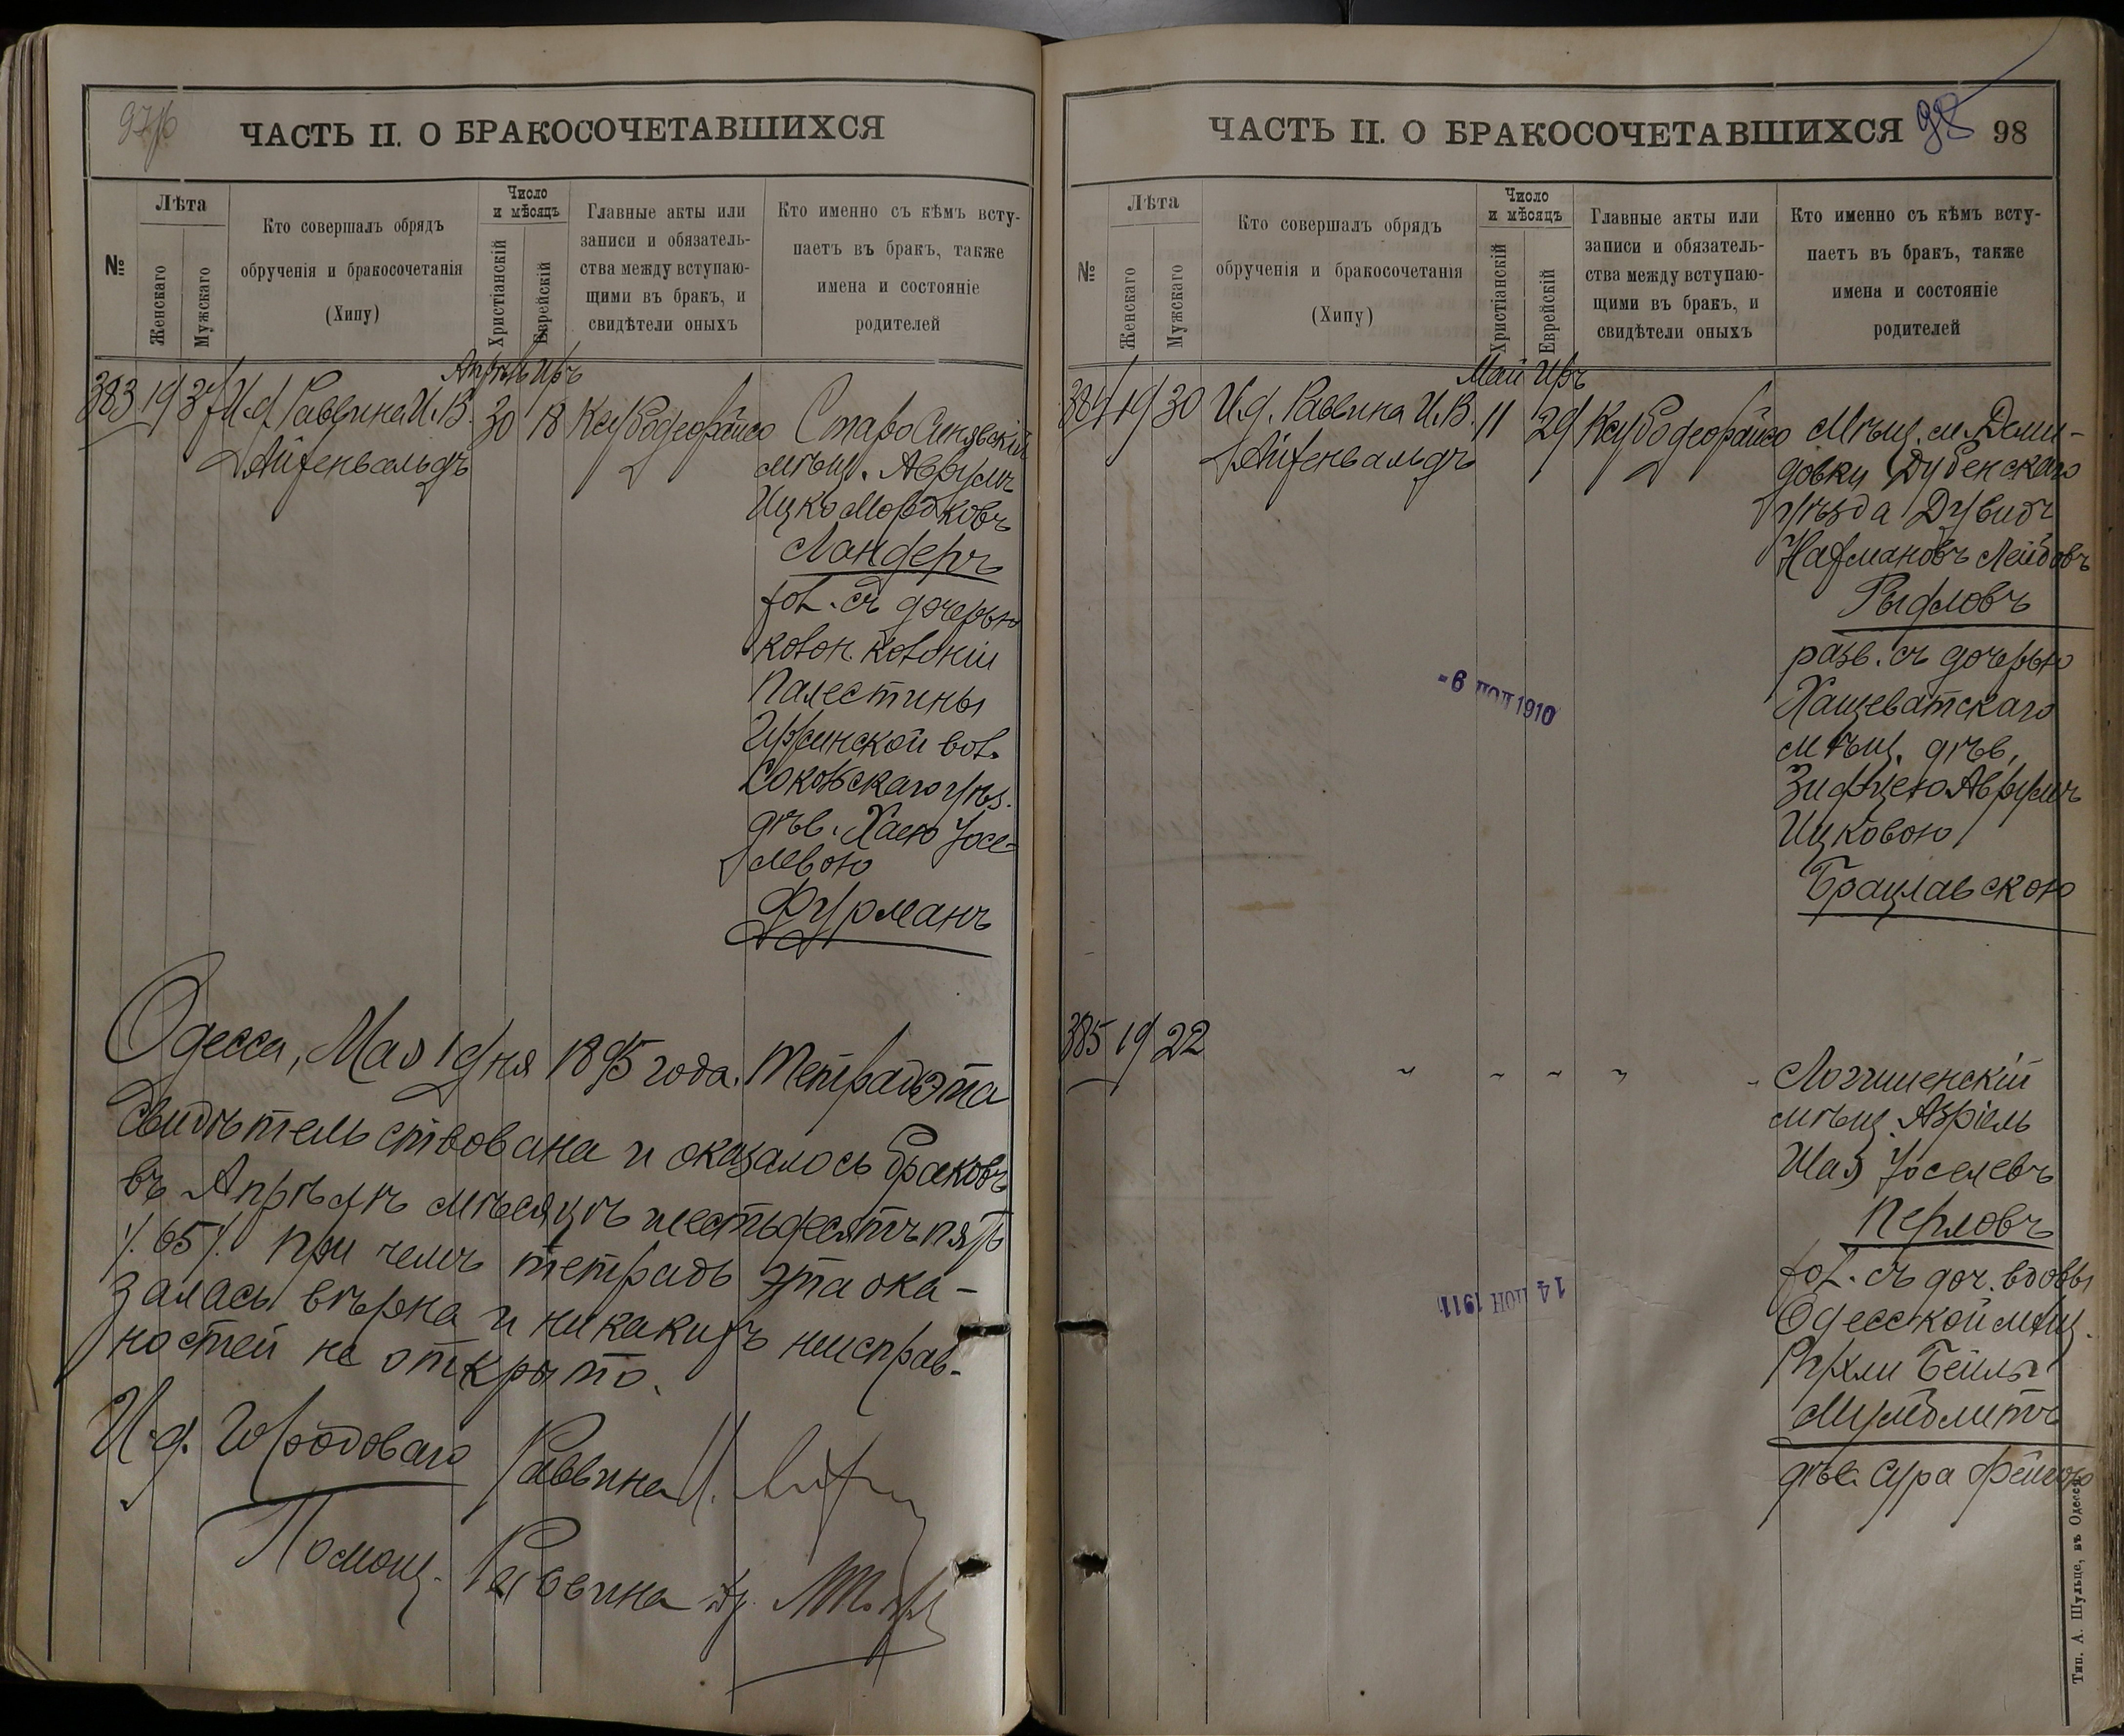 ЧАСТЬ II. О БРАКОСОЧЕТАВШИХСЯ
№
Лѣта
Женскаго
Мужскаго
Кто совершалъ обрядъ
обрученія и бракосочетанія
(Хипу)
Число
и мѣсяцъ
Христіанскій
Еврейскій
Главные акты или
записи и обязатель-
ства между вступаю-
щими въ бракъ, и
свидѣтели оныхъ
Кто именно съ кѣмъ всту-
паетъ въ бракъ, также
имена и состояніе
родителей
Апрѣль Иръ
383 19 37 И.д. Раввина И. В. 30 18
Айзенвальдъ
Старо Синявскій
мѣщ. Аврумъ
Ицко Мордковъ
Ландеръ
хол. съ дочерью
колон. колоніи
Палестины
съ
дѣв. Хаею Іосе-
левою
Фурманъ
Одесса, Мая 1 дня 1895 года. Тетрадь эта
свидѣтельствована и оказалось браковъ
въ Апрѣлѣ мѣсяцѣ шестьдесятъ пять
/. 65 /. при чемъ тетрадь эта ока-
залась вѣрна и никакихъ неисправ-
ностей не открыто.
И.д. Городоваго Раввина
Помощ. Раввина
ЧАСТЬ II. О БРАКОСОЧЕТАВШИХСЯ 98 98
№
Лѣта
Женскаго
Мужскаго
Кто совершалъ обрядъ
обрученія и бракосочетанія
(Хипу)
Число
и мѣсяцъ
Христіанскій
Еврейскій
Главные акты или
записи и обязатель-
ства между вступаю-
щими въ бракъ, и
свидѣтели оныхъ
Кто именно съ кѣмъ всту-
паетъ въ бракъ, также
имена и состояніе
родителей
Май Иръ
384 19 30 И.д. Раввина И. В. 11 29
Айзенвальдъ
Мѣщ. м. Деми-
довки Дубенскаго
уѣзда Дувидъ
Нахмановъ Лейбовъ
разв. съ дочерью
Хащеватскаго
мѣщ. дѣв.
Аврумъ
Ицковою
Брацлавскою
1910
385 19 22
мѣщ. Азріель
Шая Іоселевъ
Перловъ
хол. съ доч. вдовы
Одесской мѣщ.
Рухли Бейлы
дѣв. Сура Фейгою
14 ІЮН 1911
Тип. А. Шульце, въ Одессѣ